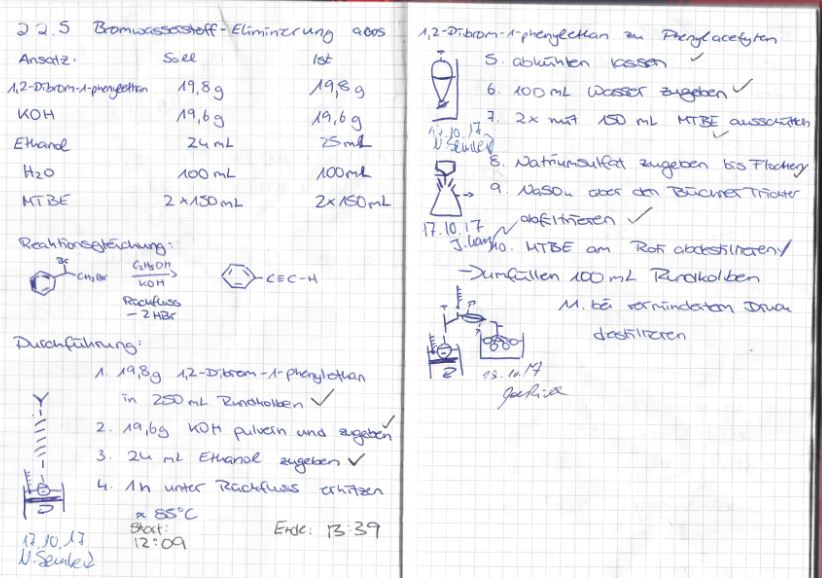 2.2.5 Bromwasserstoff-Eliminierung aus
Ansatz: Soll Ist
1,2-Dibrom-1-phenylethan 19,8g 19,8g
KOH 19,6g 19,6g
Ethanol 24mL 25mL
H₂O 100mL 100mL
MTBE 2x150mL 2x150mL
Reaktionsgleichung:
Br
CH₂Br
C₂H₅OH
KOH
Rückfluss
-2HBr
C≡C-H
Durchführung:
1. 19,8g 1,2-Dibrom-1-phenylethan
in 250 mL Rundkolben ✓
2. 19,6g KOH pulvern und zugeben ✓
3. 24 mL Ethanol zugeben ✓
4. 1h unter Rückfluss erhitzen
≈ 85°C
Start: 12:09
Ende: 13:39
17.10.17
1,2-Dibrom-1-phenylethan zu Phenylacetylen
5. abkühlen lassen ✓
6. 100 mL Wasser zugeben ✓
7. 2x mit 150 mL MTBE ausschütteln ✓
17.10.17
8. Natriumsulfat zugeben bis Flocken
9. NaSO₄ über den Büchner Trichter
abfiltrieren ✓
17.10.17
10. MTBE am Roti abdestillieren
→ umfüllen 100 mL Rundkolben
11. bei vermindertem Druck
destillieren